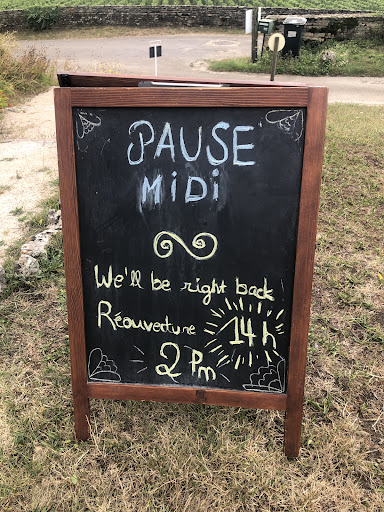 PAUSE
MiDi
We'll be right back
Réouverture 14h
2 Pm